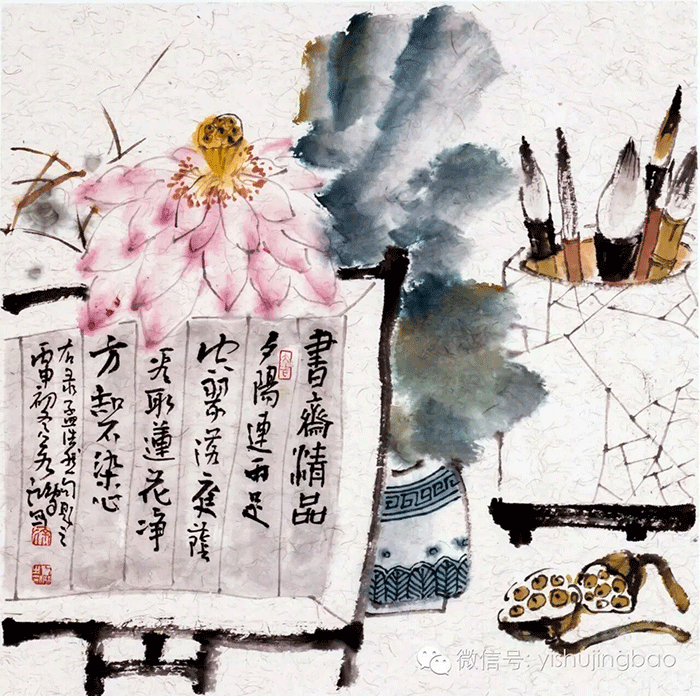 書齋精品
夕陽連雨足
空翠落庭蔭
看取蓮花淨
方知不染心
右录孟浩然句題之
丙申初冬
微信号: yishujingbao